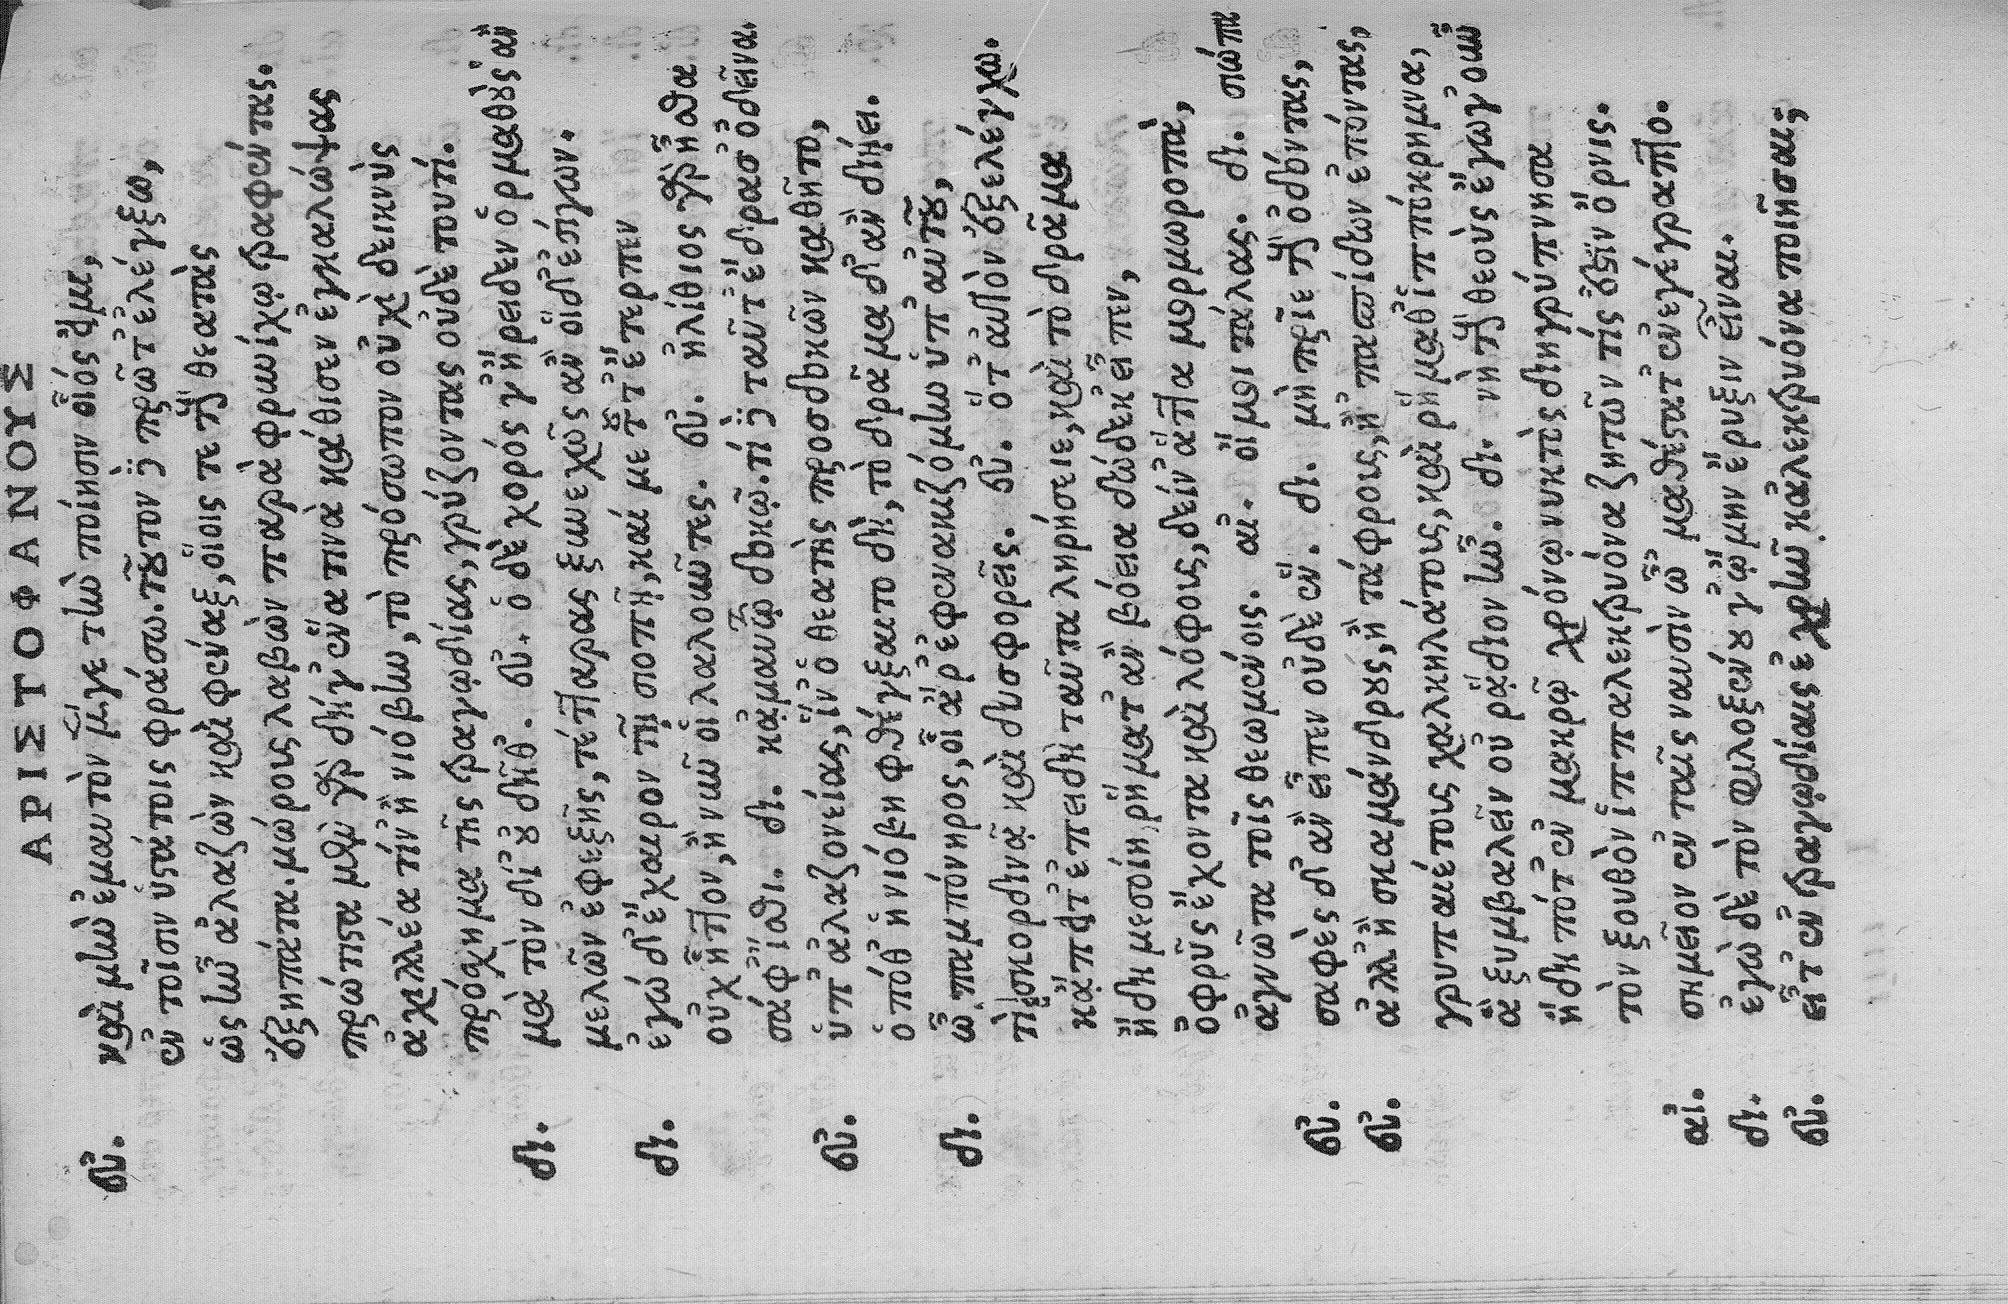 ΑΡΙΣΤΟΦΑΝΟΥΣ
εὐ. καὶ μὴν ἐμαυτὸν μέν γε τὴν ποίησιν οἷός εἰμι,
ἐν τοῖσιν ὑστάτοις φράσω. τοῦτον δὲ πρῶτ' ἐλέγξω,
ὡς ἦν ἀλαζὼν καὶ φέναξ, οἵοις τε τοὺς θεατὰς
ἐξηπάτα. μώρους λαβὼν παρὰ φρυνίχῳ τραφέντας.
πρώτιστα μὲν γὰρ δή γ' ἕνα τινὰ κάθισεν ἐγκαλύψας
ἀχιλλέα τίν' ἢ νιόβην, τὸ πρόσωπον οὐχὶ δεικνὺς
πρόσχημα τῆς τραγωδίας, γρύζοντας οὐδὲ τουτί.
δι. μὰ τὸν δί' οὐ δῆθ'. εὐ. ὁ δὲ χορός γ' ἤρειδεν ὁρμαθοὺς ἂν
μελῶν ἐφεξῆς, τέτταρας ξυνεχῶς ἂν οἱ δ' ἐσίγων.
δι. ἐγώ δ' ἔχαιρον τῇ σιωπῇ, καί με τοῦτ' ἔτερπεν
οὐχ ἧττον, ἢ νῦν οἱ λαλοῦντες. εὐ. ἠλίθιος γὰρ ἦσθα
σάφ' ἴσθι. δι. κἀμαυτῷ δοκῶ. τί δὲ ταῦτ' ἔδρασ' ὁ δεῖνα.
εὐ. ὑπ' ἀλαζονείας, ἵν' ὁ θεατὴς προσδοκῶν καθῆτο,
ὁπόθ' ἡ νιόβη φθέγξαιτο δὴ, τὸ δρᾶμα δ' ἂν διῄει.
δι. ὦ παμπόνηρος, οἷ' ἄρ' ἐφενακιζόμην ὑπ' αὐτοῦ,
τί σκορδινᾷ καὶ δυσφορεῖς. εὐ. ὅτ' αὐτὸν ἐξελέγχω.
κἄπειτ' ἐπειδὴ ταῦτα ληρήσειε, καὶ τὸ δρᾶμα
ἤδη μεσοίη, ῥήματ' ἂν βόεια δώδεκ' εἶπεν,
ὀφρῦς ἔχοντα καὶ λόφους, δείν' ἄττα μορμωροπὰ,
ἀγνῶτα τοῖς θεωμένοις. αἰ. οἴμοι τάλας. δι. σιώπα
εὐ. σαφὲς δ' ἂν εἶπεν οὐδὲ ἕν. δι. μὴ πρῖε τοὺς ὀδόντας,
εὐ. ἀλλ' ἢ σκαμάνδρους, ἢ τάφρους, ἢ 'π' ἀσπίδων ἐπόντας,
γρυπαιέτους χαλκηλάτους, καὶ ῥήμαθ' ἱππόκρημνα,
ἃ ξυμβαλεῖν οὐ ῥᾴδιον ἦν. δι. νὴ τοὺς θεοὺς ἔγωγ' οὖν
ἤδη πότ' ἐν μακρῷ χρόνῳ νυκτὸς διηγρύπνησα
τὸν ξουθὸν ἱππαλεκτρυόνα ζητῶν τίς ἐστὶν ὄρνις.
αἰ. σημεῖον ἐν ταῖς ναυσὶν ὦ μαθέστατ' ἐνεγέγραπτο.
δι. ἐγὼ δὲ τὸν φιλοξένου γ' ᾤμην ἔρυξιν εἶναι.
εὐ. εἶτ' ἐν τραγωδίαις ἐχρῆν κἀλεκτρυόνα ποιῆσαι;